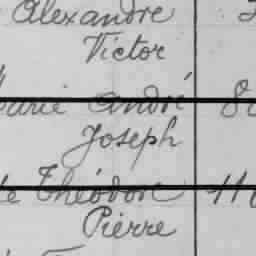 Alexandre
Victor
Marie André
Joseph
Théodore
Pierre